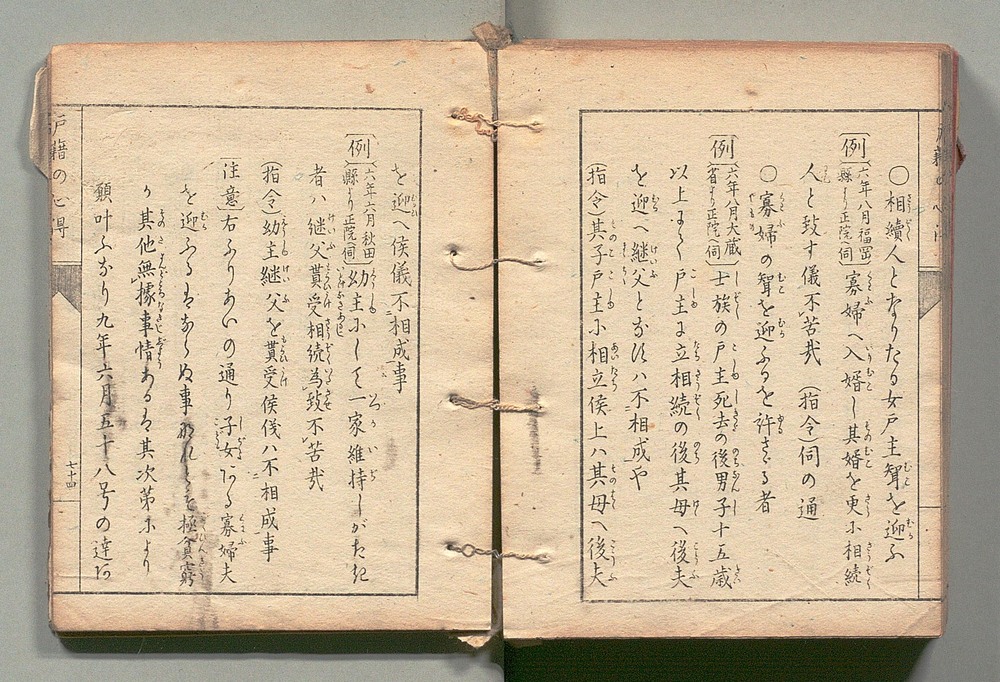 〇相續人となりたる女戸主聟を迎ふ
例 六年八月福岡縣より正院へ伺 寡婦へ入婿し其婿を更に相続
人と致す儀不苦哉 (指令)伺の通
〇寡婦の聟を迎ふるを許さゞる者
例 六年八月大蔵省より正院へ伺 士族の戸主死去の後男子十五歳
以上にて戸主に立相続の後其母へ後夫
を迎へ継父と為すハ不相成や
(指令)其子戸主に相立候上ハ其母へ後夫
を迎へ候儀不相成事
例 六年六月秋田縣より正院へ伺 幼主にして一家維持しがたき
者ハ継父貰受相続為致不苦哉
(指令)幼主継父を貰受候儀ハ不相成事
注意 右ふりあいの通り子女ある寡婦夫
を迎ふるはならぬ事なれども極貧窮
か其他無據事情あるは其次第により
願叶ふなり九年六月五十八号の達あ
戸籍の心得
七十四